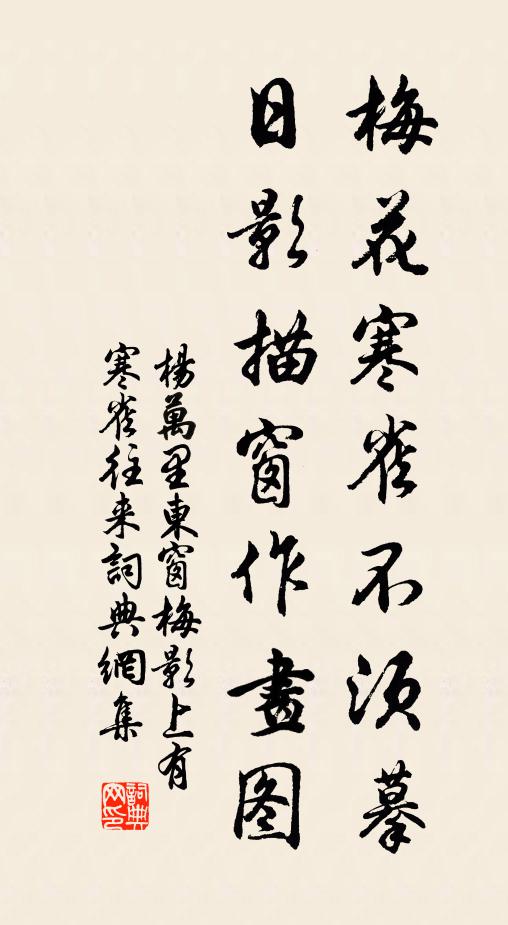 梅花寒雀不須摹
日影描窗作畫图
楊萬里東窗梅影上有
寒雀往来詞典網集
詞典网印